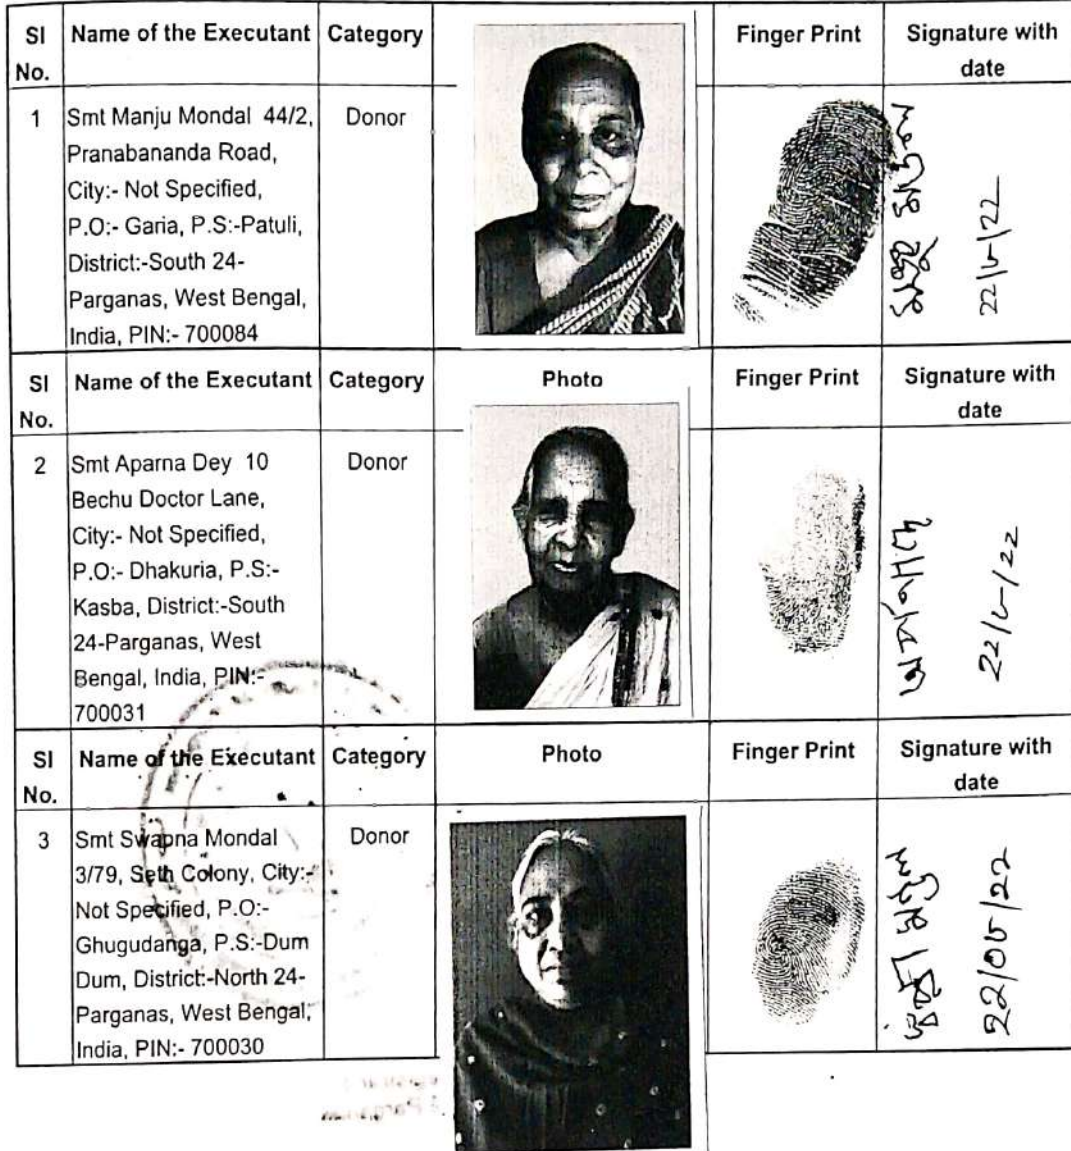 Sl No. Name of the Executant Category Finger Print Signature with date
1 Smt Manju Mondal 44/2, Donor
Pranabananda Road,
City:- Not Specified,
P.O:- Garia, P.S:-Patuli,
District:-South 24-
Parganas, West Bengal,
India, PIN:- 700084
22/৮/22
Sl No. Name of the Executant Category Photo Finger Print Signature with date
2 Smt Aparna Dey 10 Donor
Bechu Doctor Lane,
City:- Not Specified,
P.O:- Dhakuria, P.S:-
Kasba, District:-South
24-Parganas, West
Bengal, India, PIN:-
700031
22/৮/22
Sl No. Name of the Executant Category Photo Finger Print Signature with date
3 Smt Swapna Mondal Donor
3/79, Seth Colony, City:-
Not Specified, P.O:-
Ghugudanga, P.S:-Dum
Dum, District:-North 24-
Parganas, West Bengal,
India, PIN:- 700030
22/0৮/22